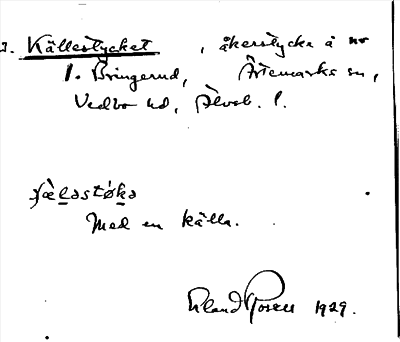 Källestycket, åkerstycke å nr
1. Bringerud, Ärtemarks sn,
Vedbo hd, Älvsb. l.
Med en källa.
Erland Rosell 1929.